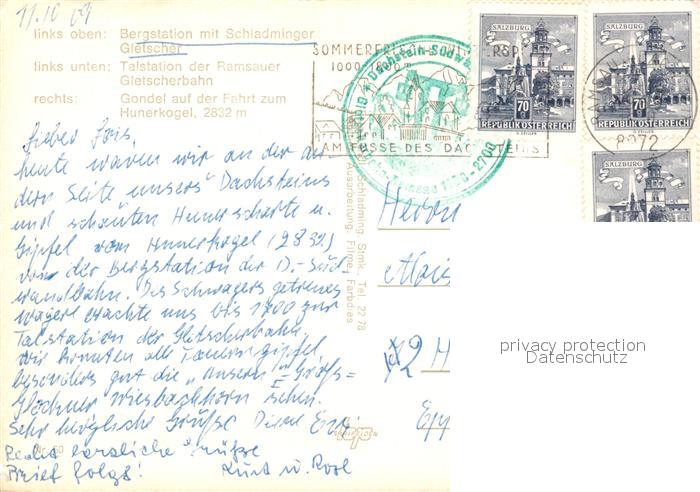 11.10 69
links oben: Bergstation mit Schladminger
Gletscher
links unten: Talstation der Ramsauer
Gletscherbahn
rechts: Gondel auf der Fahrt zum
Hunerkogel, 2832 m
SOMMERFRISCHE
AM FUSSE DES DACHSTEINS
Dachstein-Südwa
SALZBURG
70
REPUBLIK ÖSTERREICH
SALZBURG
70
REPUBLIK ÖSTERREICH
SALZBURG
8972
Lieber Lois,
heute waren wir an der an
dern Seite "unsers" Dachsteins
und schauten Hunerscharte u.
Gipfel vom Hunerkogel
von der Bergstation der D.-Süd
wandbahn. Des Schwagers getreues
Wagerl brachte uns bis 1700 zur
Talstation der Gletscherbahn.
Wir konnten alle Tauerngipfel,
besonders gut die "unsern" Groß=
Glockner Wiesbachhorn sehen.
Sehr herzliche Grüße Deine
Recht herzliche Grüße
Brief folgt! Kurt u.
Schladming, Stmk., Tel. 22 78
Ausarbeitung, Filme, Farbdias
Herrn
privacy protection
Datenschutz